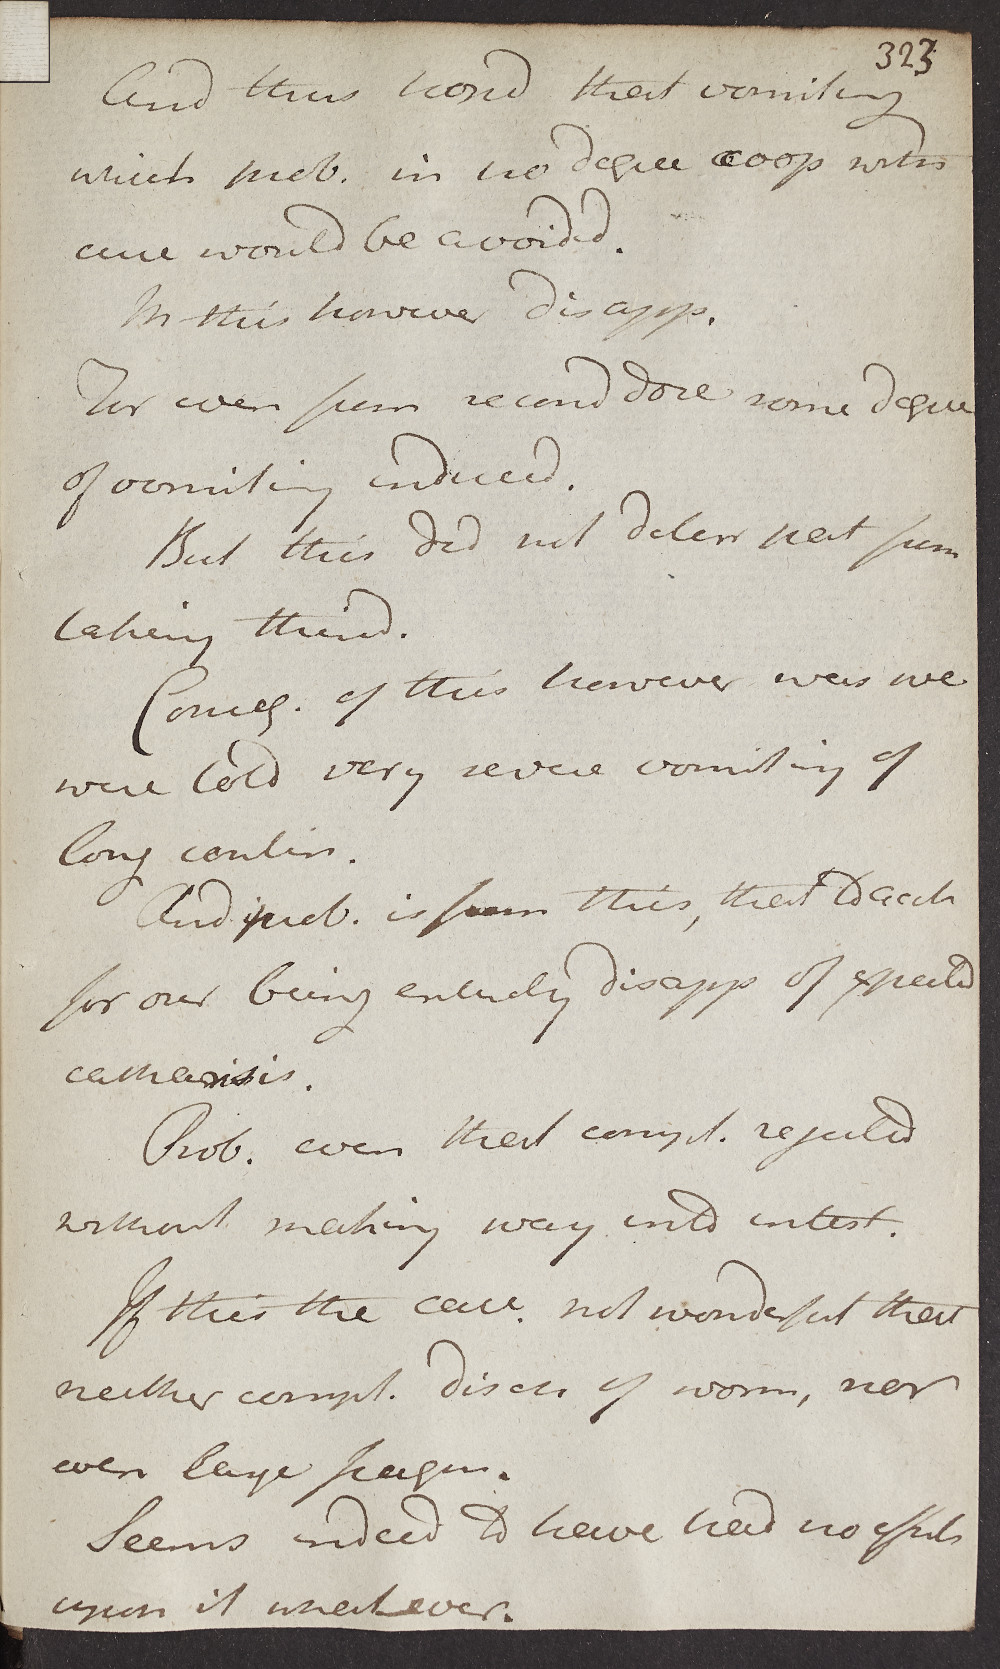 323
And thus hoped that vomiting
which prob. in no degree coop with
cure would be avoided.
In this however disapp.
For even from second dose some degree
of vomiting induced.
But this did not deterr pat from
taking third.
Conseq. of this however was we
were told very severe vomiting of
long contin.
And prob. is from this, that to acct
for our being entirely disapp of expected
catharsis.
Prob. even that compl. rejected
without making way into intest.
If this the case. not wonderful that
neither compl. disch of worm, nor
even large fragm.
Seems indeed to have had no effects
upon it whatever.